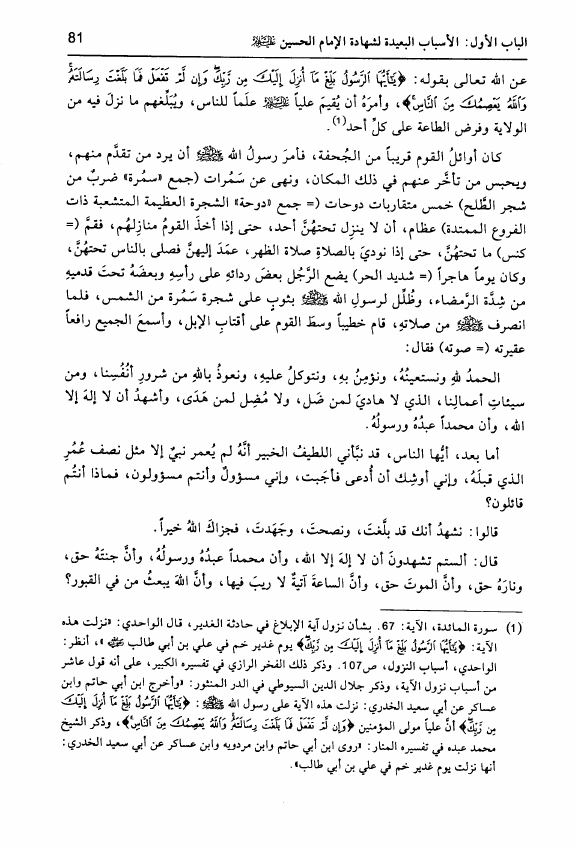 الباب الأول: الأسباب البعيدة لشهادة الإمام الحسين عليه السلام 81
عن الله تعالى بقوله: ﴿يَٰٓأَيُّهَا ٱلرَّسُولُ بَلِّغۡ مَآ أُنزِلَ إِلَيۡكَ مِن رَّبِّكَۖ وَإِن لَّمۡ تَفۡعَلۡ فَمَا بَلَّغۡتَ رِسَالَتَهُۥۚ
وَٱللَّهُ يَعۡصِمُكَ مِنَ ٱلنَّاسِۗ﴾، وأمرَهُ أن يُقيمَ علياً عليه السلام علَماً للناس، ويُبلِّغهم ما نزلَ فيه من
الولاية وفرض الطاعة على كلِّ أحد(1).
كان أوائلُ القوم قريباً من الجُحفة، فأمرَ رسولُ الله ﷺ أن يرد من تقدَّم منهم،
ويحبس من تأخَّر عنهم في ذلك المكان، ونهى عن سَمُرات (جمع «سَمُرة» ضربٌ من
شجر الطَّلح) خمس متقاربات دوحات (= جمع «دوحة» الشجرة العظيمة المتشعبة ذات
الفروع الممتدة) عظام، أن لا ينزل تحتهُنَّ أحد، حتى إذا أخذَ القومُ منازلِهُم، فقمَّ (=
كنس) ما تحتهُنَّ، حتى إذا نوديَ بالصلاةِ صلاة الظهر، عمَدَ إليهنَّ فصلى بالناس تحتهُنَّ،
وكان يوماً هاجراً (= شديد الحر) يضع الرَّجُل بعضَ ردائهِ على رأسِهِ وبعضَهُ تحتَ قدميهِ
من شِدَّة الرَّمضاء، وظُلِّل لرسولِ الله ﷺ بثوبٍ على شجرة سَمُرة من الشمس، فلما
انصرف ﷺ من صلاتهِ، قام خطيباً وسطَ القوم على أقتابِ الإبل، وأسمعَ الجميع رافعاً
عقيرته (= صوته) فقال:
الحمدُ للهِ ونستعينُهُ، ونؤمِنُ بهِ، ونتوكلُ عليهِ، ونعوذُ باللهِ من شرورِ أنفُسِنا، ومن
سيئاتِ أعمالِنا، الذي لا هاديَ لمن ضَل، ولا مُضِل لمن هَدَى، وأشهدُ أن لا إلهَ إلا
الله، وأن محمداً عبدُهُ ورسولُهُ.
أما بعد، أيُّها الناس، قد نبَّأني اللطيفُ الخبير أنَّهُ لم يُعمر نبيٌ إلا مثل نصف عُمُرِ
الذي قبلَهُ، وإني أوشِك أن أُدعى فأجَبت، وإني مسؤولٌ وأنتم مسؤولون، فماذا أنتُم
قائلون؟
قالوا: نشهدُ أنك قد بلَّغتَ، ونصحتَ، وجَهَدتَ، فجزاكَ اللهُ خيراً.
قال: ألستم تشهدونَ أن لا إلهَ إلا الله، وأن محمداً عبدُهُ ورسولُهُ، وأنَّ جنتَهُ حق،
ونارَهُ حق، وأنَّ الموتَ حق، وأنَّ الساعةَ آتيةٌ لا ريبَ فيها، وأنَّ اللهَ يبعثُ من في القبور؟
(1) سورة المائدة، الآية: 67. بشأن نزول آية الإبلاغ في حادثة الغدير، قال الواحدي: «نزلت هذه
الآية: ﴿يَٰٓأَيُّهَا ٱلرَّسُولُ بَلِّغۡ مَآ أُنزِلَ إِلَيۡكَ مِن رَّبِّكَ﴾ يوم غدير خم في علي بن أبي طالب»، أنظر:
الواحدي، أسباب النزول، ص107. وذكر ذلك الفخر الرازي في تفسيره الكبير، على أنه قول عاشر
من أسباب نزول الآية، وذكر جلال الدين السيوطي في الدر المنثور: «وأخرج ابن أبي حاتم وابن
عساكر عن أبي سعيد الخدري: نزلت هذه الآية على رسول الله ﷺ: ﴿يَٰٓأَيُّهَا ٱلرَّسُولُ بَلِّغۡ مَآ أُنزِلَ إِلَيۡكَ
مِن رَّبِّكَ﴾ أنَّ علياً مولى المؤمنين ﴿وَإِن لَّمۡ تَفۡعَلۡ فَمَا بَلَّغۡتَ رِسَالَتَهُۥۚ وَٱللَّهُ يَعۡصِمُكَ مِنَ ٱلنَّاسِ﴾، وذكر الشيخ
محمد عبده في تفسيره المنار: «روى ابن أبي حاتم وابن مردويه وابن عساكر عن أبي سعيد الخدري:
أنها نزلت يوم غدير خم في علي بن أبي طالب».